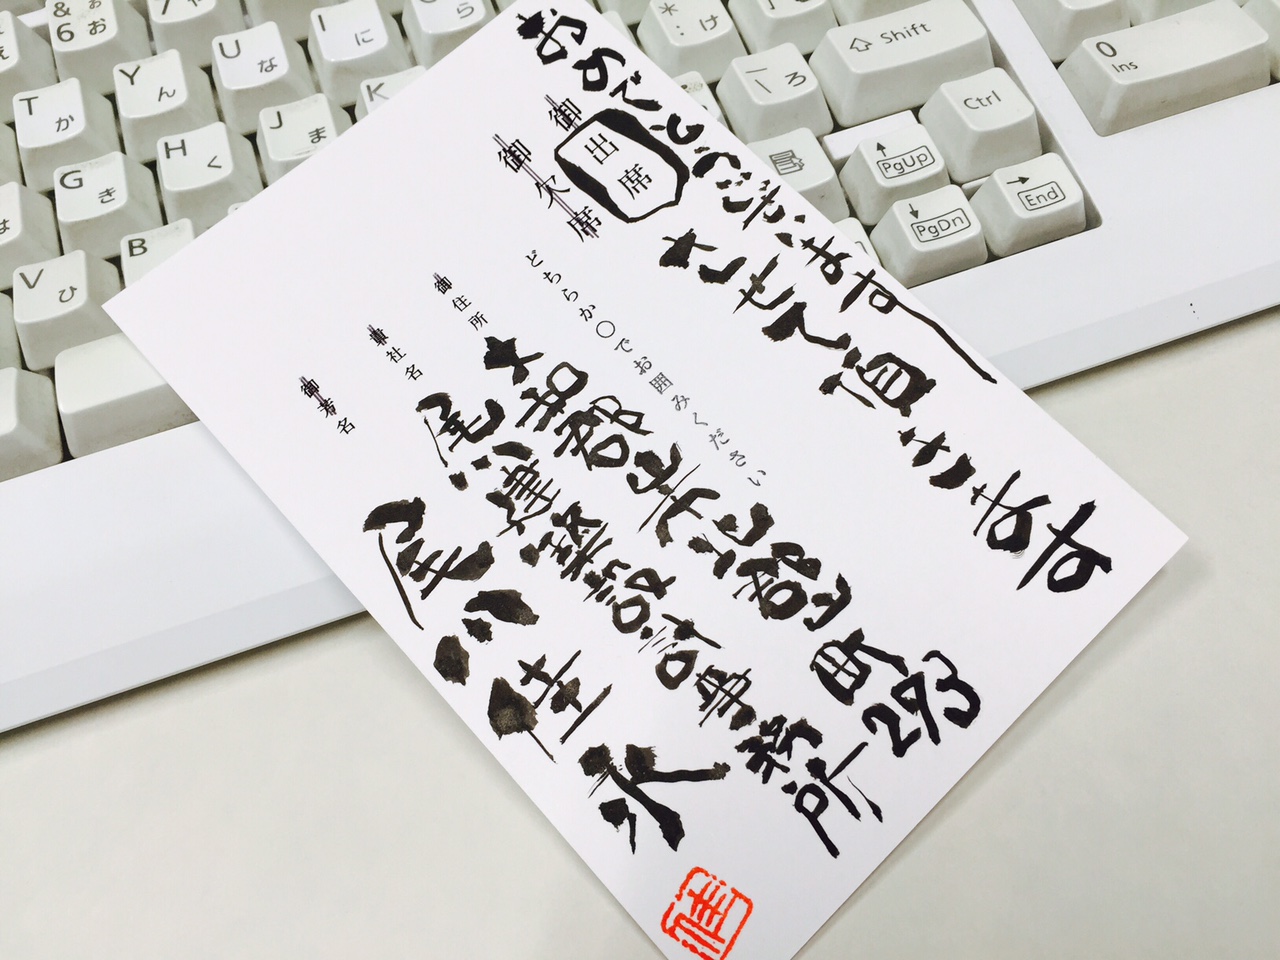 おめでとうございます
御出席 させて頂きます
御欠席
どちらか○でお囲みください
御住所 大和郡山市北郡山町293
貴社名 尾川建築設計事務所
御芳名 尾川佳
佳
& 6 ぉ お
T か
Y ん
U な
I に
ら
G き
H く
J ま
K
V ひ
B
* : け
\ ろ
Shift
Ctrl
PgUp
PgDn
End
0 Ins